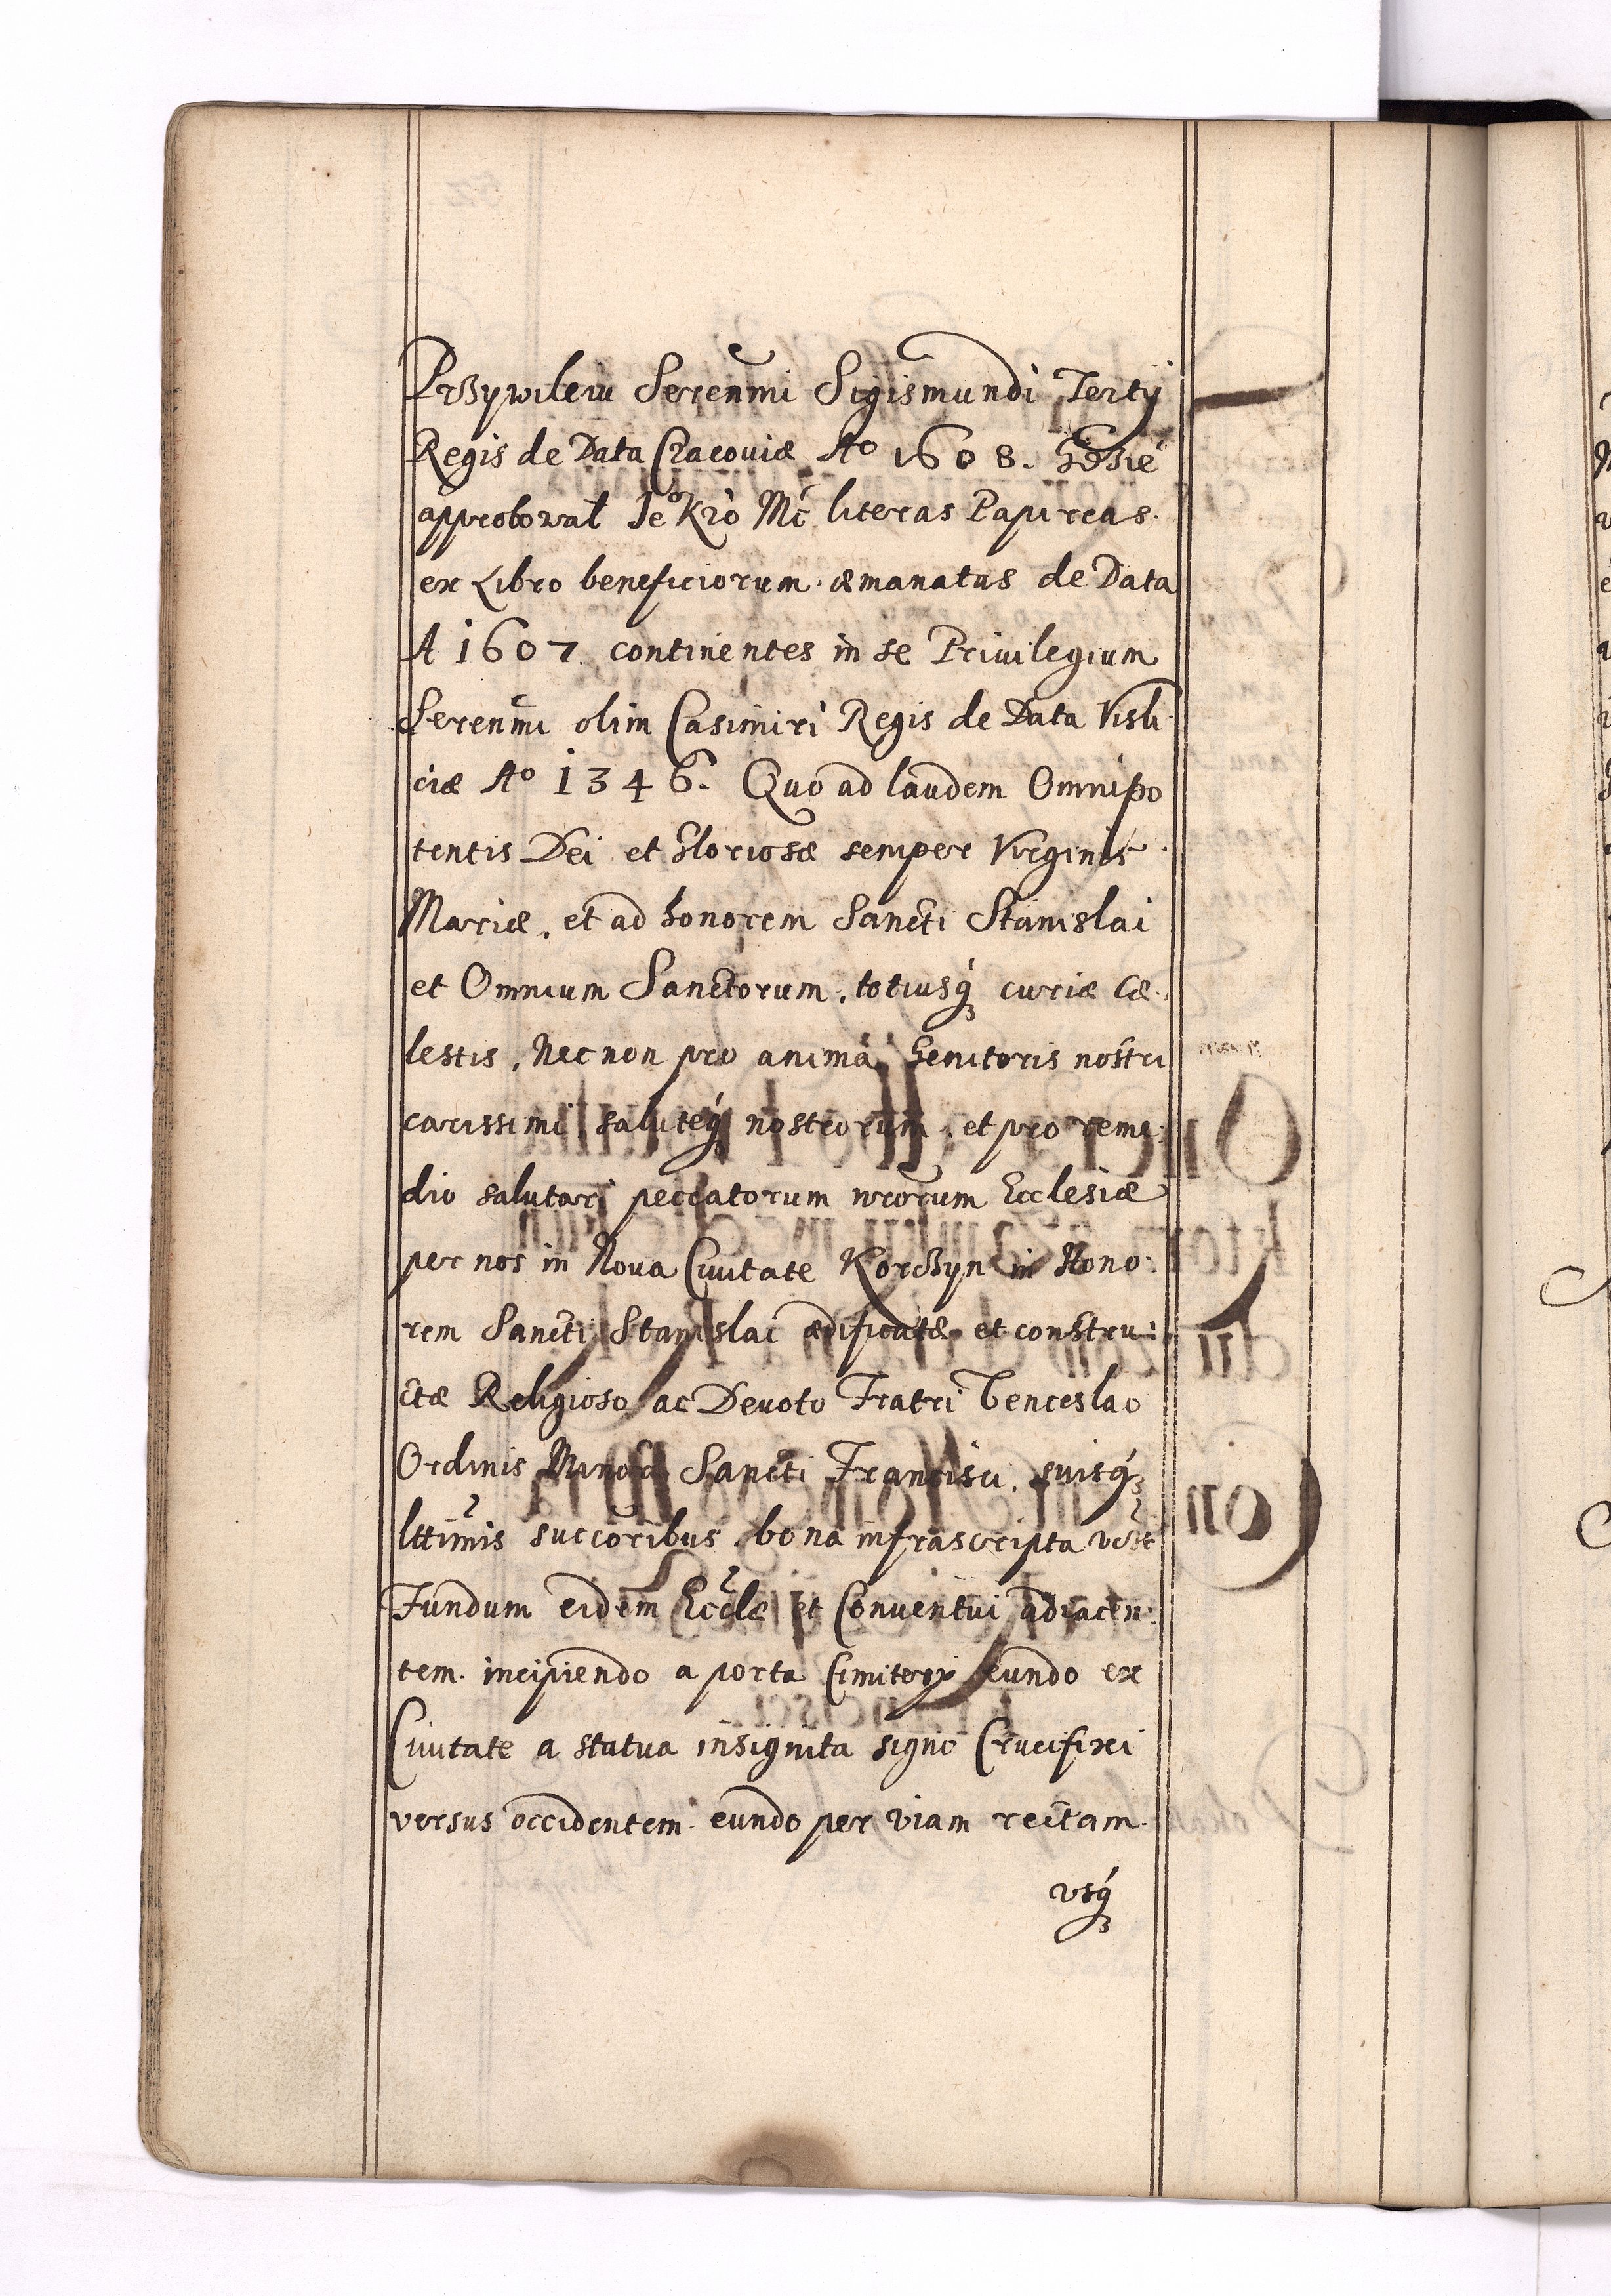 Przywileiu Serenmi Sigismundi Tertij
Regis de Data Cracouiæ Ao 1608. Gdzie
approbował Je Kro Mć literas Papireas
ex Libro beneficiorum æmanatas de Data
A 1607 continentes in se Priuilegium
Serenmi olim Casimiri Regis de Data Visli
ciæ Ao 1346. Quo ad laudem Omnipo
tentis Dei et Gloriosæ semper Virginis
Mariæ, et ad honorem Sancti Stanislai
et Omnium Sanctorum, totiusq́ curiæ Cæ
lestis, Nec non pro anima Genitoris nostri
carissimi saluteq́ nostrorum, et pro reme
dio salutari peccatorum nrorum Ecclesiæ
per nos in Noua Ciuitate Korczyn in Hono
rem Sancti Stanislai ædificatæ et constru
ctæ Religioso ac Deuoto Fratri Venceslao
Ordinis Minor Sancti Francisci, suisq́
lttimis succoribus, bona infrascripta
Fundum eidem Ecclæ et Conuentui adiacen
tem. incipiendo a porta Cimiterij eundo ex
Ciuitate a statua insignita signo Crucifixi
versus occidentem eundo per viam rectam
vsq́